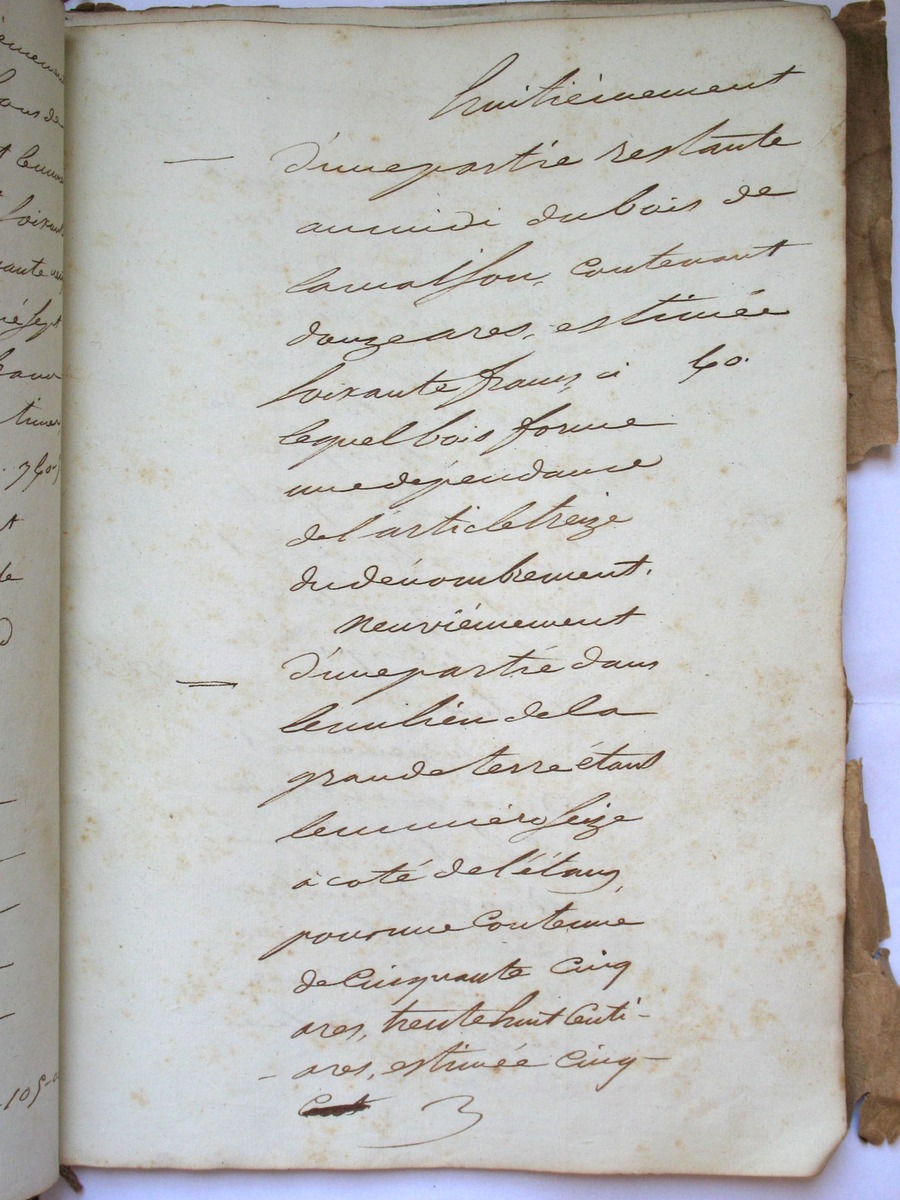 huitièmement
— d'une partie restante
au midi du bois de
la maison, contenant
douze ares, estimée
soixante francs ci 60.
lequel bois forme
une dépendance
de l'article treize
du dénombrement.
neuvièmement
— d'une partie dans
le milieu de la
grande terre étant
le numéro seize
à coté de l'étang,
pour une contenue
de cinquante cinq
ares, trente huit centi-
ares, estimée cinq